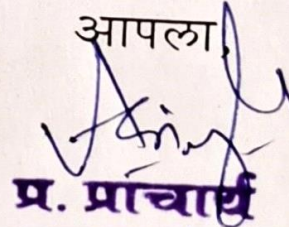 आपला
प्र. प्राचार्य